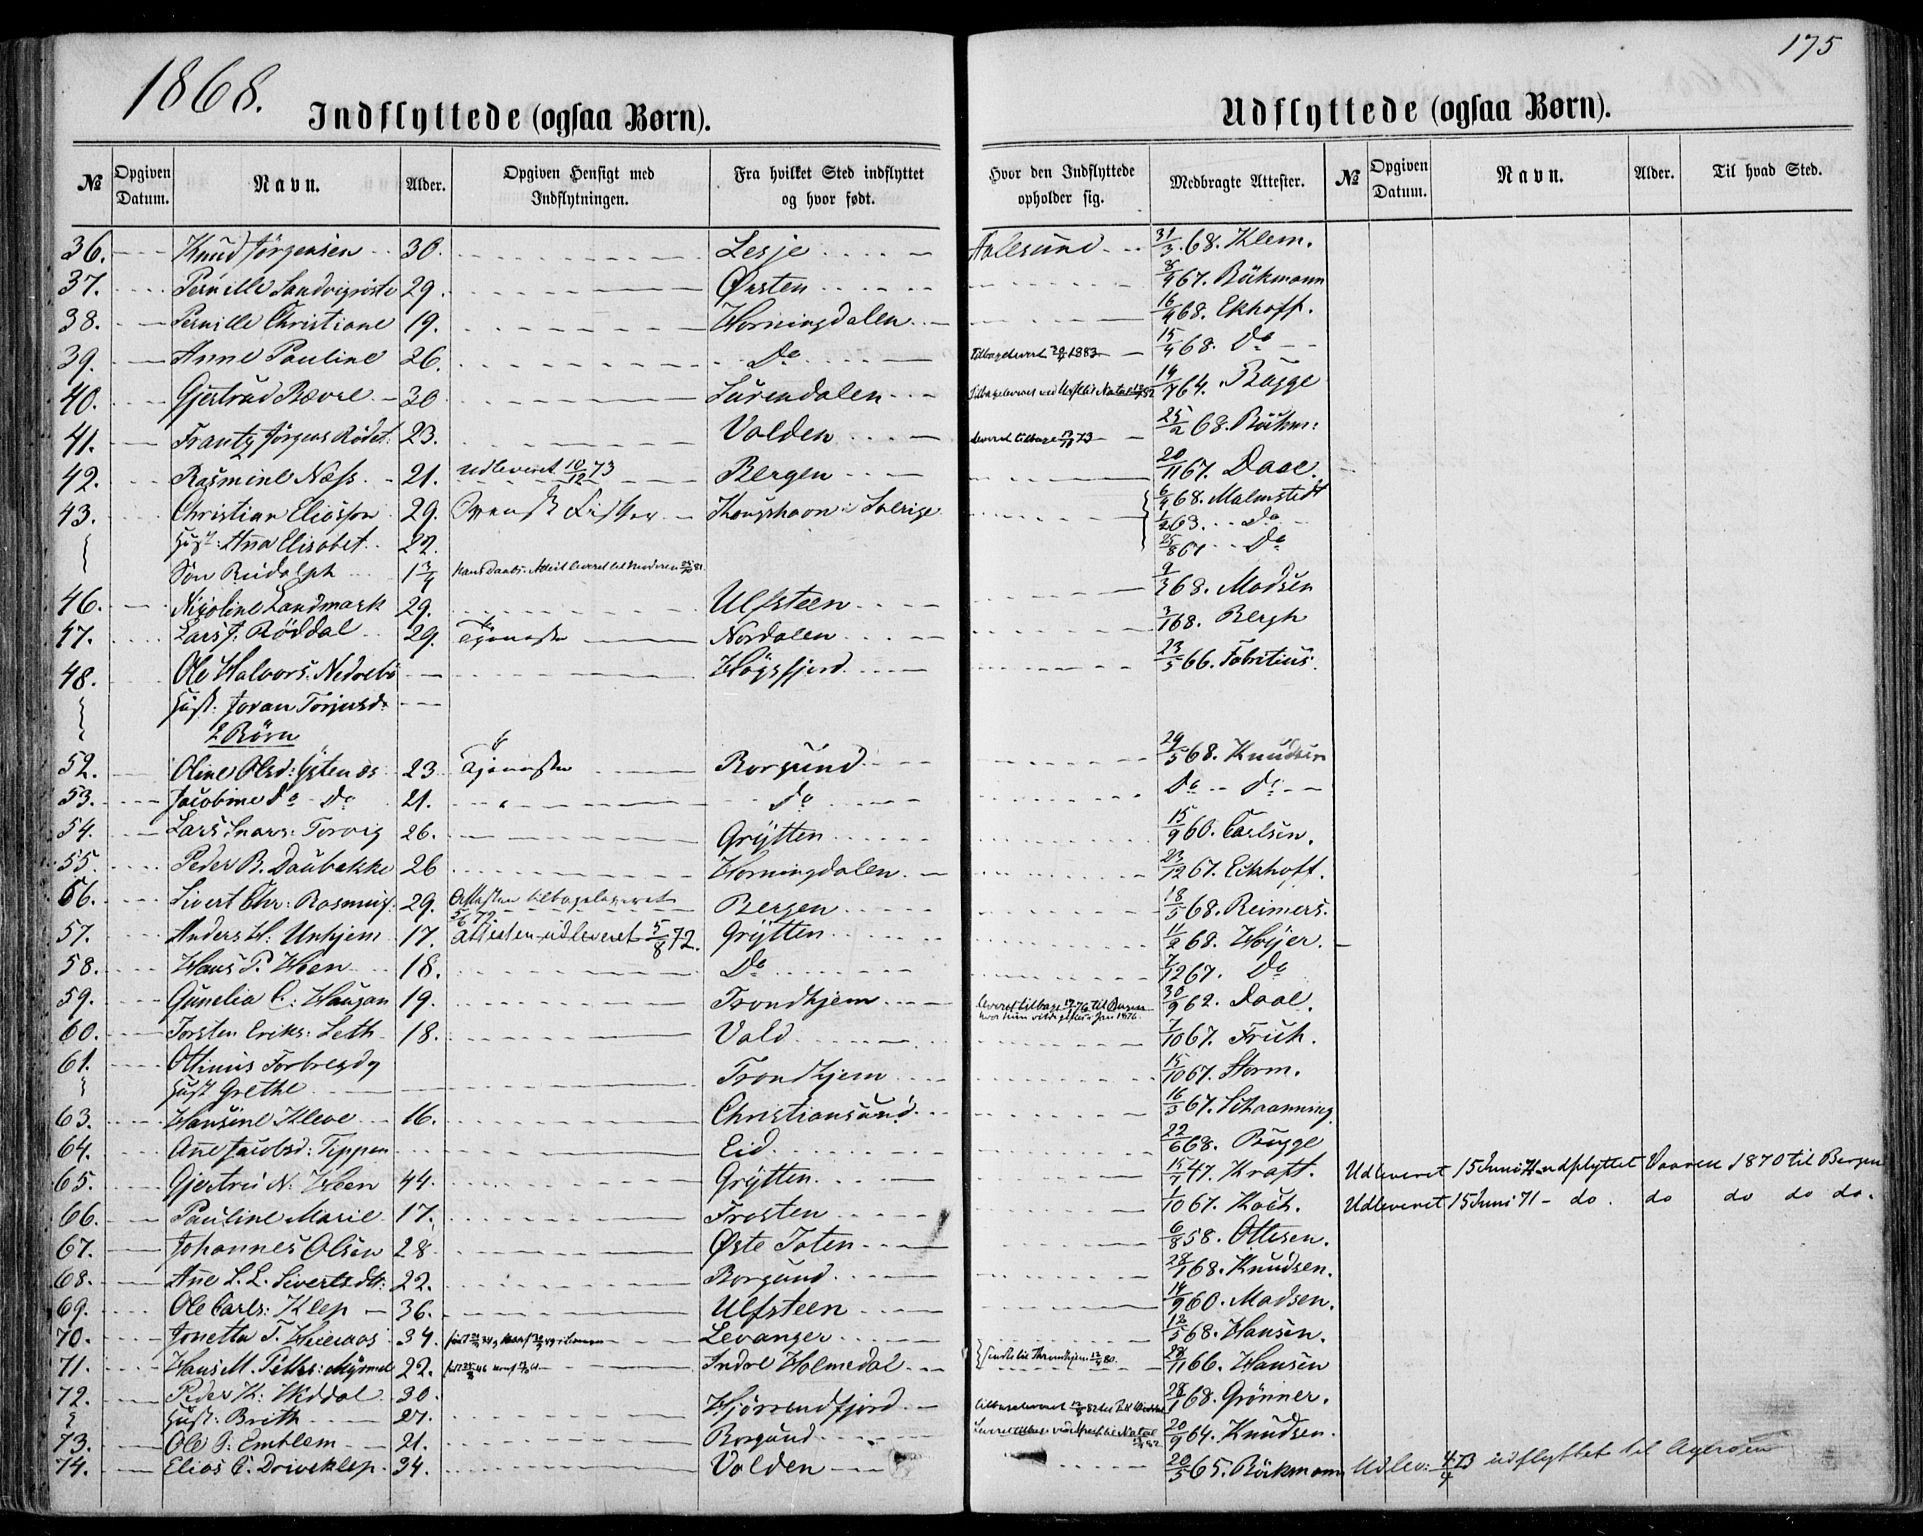 1868.
175
Indflyttede (ogsaa Børn).
Udflyttede (ogsaa Børn).
№ Opgiven Datum. Navn. Alder. Opgiven Hensigt med Indflytningen. Fra hvilket Sted indflyttet og hvor født. Hvor den Indflyttede opholder sig. Medbragte Attester. № Opgiven Datum. Navn. Alder. Til hvad Sted.
36. Knud Jørgensen 30. Lesje Aalesund 31/3 68. Klem.
37. Pernille 29. Ørsten 8/4 67. Bøkmann
38. Pernille Christiane 19. Horningdalen 16/4 68. Ekhoff.
39. Anne Pauline 26. Do 1883 15/4 68. Do
40. Gjertrud Rævre 30 Surendalen 14/7 64. Bugge
41. Frantz Jørgens Rødset: 23. Volden leveret tilbage 73 25/2 68. Bøkm:
42. Rasmine Næss 21. Udleveret 10/12 73 Bergen 20/11 67. Daae.
43. Christian Eliasson 29. Svensk Fisker Sverige 6/4 68. Malmstedt
Hust: Anna Elisabet 22. 1/2 63. Do
Søn Rudolph 1 3/4 25/8 67 Do
46. Nicoline Landmark 29. Ulfsteen 9/3 68. Madsen
47. Lars J. Røddal 29. Tjeneste Nordalen 3/1 68. Bergh
48. Ole Halvors: Nedrebø Høgsfjord 23/5 66. Fabritius.
Hust: Joran Torjusd:
2 Børn
52. Oline Olsd: Ystenæs 23 Tjeneste Borgund 29/5 68. Knudsen
53. Jacobine Do Do 21. " Do Do Do
54. Lars Ivars: Torvig 26. Grytten 15/9 60. Carlsen.
55. Peder B. Daubakke 26 Horningdalen 23/12 67. Eckhoff.
56. Sivert Chr: Rasmus: 29. Attesten tilbageleveret 5/6 72. Bergen 18/5 68. Reimers.
57. Anders H: Unhjem 17. Attesten udleveret 5/8 72. Grytten 11/2 68. Høyer.
58. Hans P. Hoen 18. Do 7/12 67. Do
59. Gunelia C: Haugan 19. Trondhjem leveret tilbage til Bergen hvor hun Jan 1876. 30/9 62. Daae.
60. Torsten Eriks: Leth 18. Vold 7/10 67. Frich.
61. Ottinius Forbregdy Trondhjem 15/10 67. Storm.
Hust Grethe
63. Hansine Kleve 16. Christiansund 16/3 67. Schaanning
64. Ane Jacobsd: Tippen Eid 22/6 68. Bugge
65. Gjertru N. Hoen 44. Grytten 15/7 47. Kraft. Udleveret 15 Juni 71 udflyttet Vaaren 1870 til Bergen
66. Pauline Marie 17. Frosten 1/10 67. Koch. Udleveret 15 Juni 71 - do. do do do do.
67. Johannes Olsen 28 Øste Toten 6/8 58. Ottesen.
68. Ane L. L. Sivertsdt: 22. Borgund 28/1 68. Knudsen.
69. Ole Carls: Klep 36. Ulfsteen 14/9 60. Madsen.
70. Jonetta T. 34. Levanger 12/5 68. Hansen.
71. Hans M. Peths: Myrmel 22. Indre Holmedal sendt til Throndhjem 80. 28/11 66. Hansen
72. Peder K: Widdal 30. Hjørrendfjord tilbageleveret 82 28/1 68. Grønner.
Hust: Brith 27.
73. Ole G: Emblem 21. Borgund Natal 82 20/9 64. Knudsen.
74. Elias E. Driveklep 34. Volden 20/3 65. Bøkmann Udlev: 4/4 73 udflyttet til Agerøen